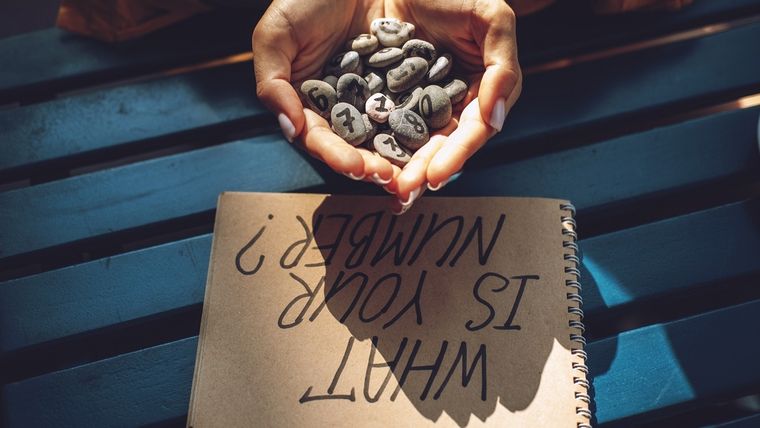 WHAT
IS YOUR
NUMBER?
6
7
1
8
7